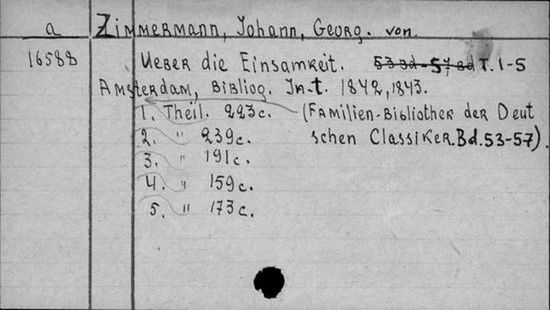 a Zimmermann, Johann, Georg. von.
16588 Ueber die Einsamkeit. 53 Bd-57 Bd T. 1-5
Amsterdam, Bibliog. In-t. 1842, 1843.
1. Theil. 223c. (Familien-Bibliothek der Deut
2. " 239c. schen Classiker. Bd. 53-57).
3. " 191c.
4. " 159c.
5. " 173c.